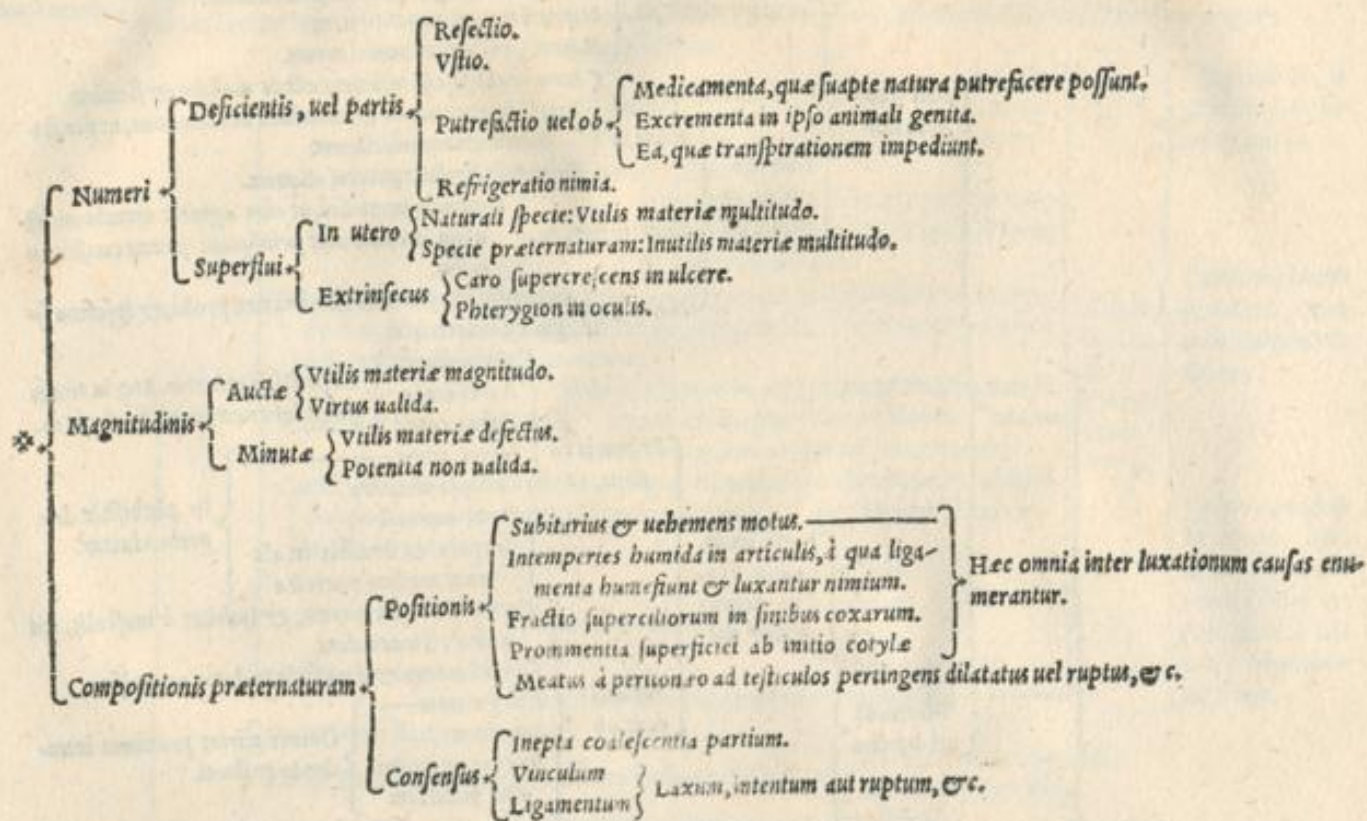 Reſectio.
Vſtio.
Deficientis, uel partis
Putrefactio uel ob
Medicamenta, quæ ſuapte natura putrefacere poſſunt.
Excrementa in ipſo animali genita.
Ea, quæ tranſpirationem impediunt.
Refrigeratio nimia.
Numeri
Superflui
In utero
Naturali ſpecie: Vtilis materiæ multitudo.
Specie præternaturam: Inutilis materiæ multitudo.
Extrinſecus
Caro ſupercreſcens in ulcere.
Phterygion in oculis.
Magnitudinis
Auctæ
Vtilis materiæ magnitudo.
Virtus ualida.
Minutæ
Vtilis materiæ defectus.
Potentia non ualida.
Compoſitionis præternaturam
Poſitionis
Subitarius & uehemens motus.
Intemperies humida in articulis, à qua liga-
menta humefiunt & luxantur nimium.
Fractio ſuperciliorum in ſinibus coxarum.
Prominentia ſuperficiei ab initio cotylæ
Hæc omnia inter luxationum cauſas enu-
merantur.
Meatus à peritonæo ad teſticulos pertingens dilatatus uel ruptus, &c.
Conſenſus
Inepta coaleſcentia partium.
Vinculum
Ligamentum
Laxum, intentum aut ruptum, &c.